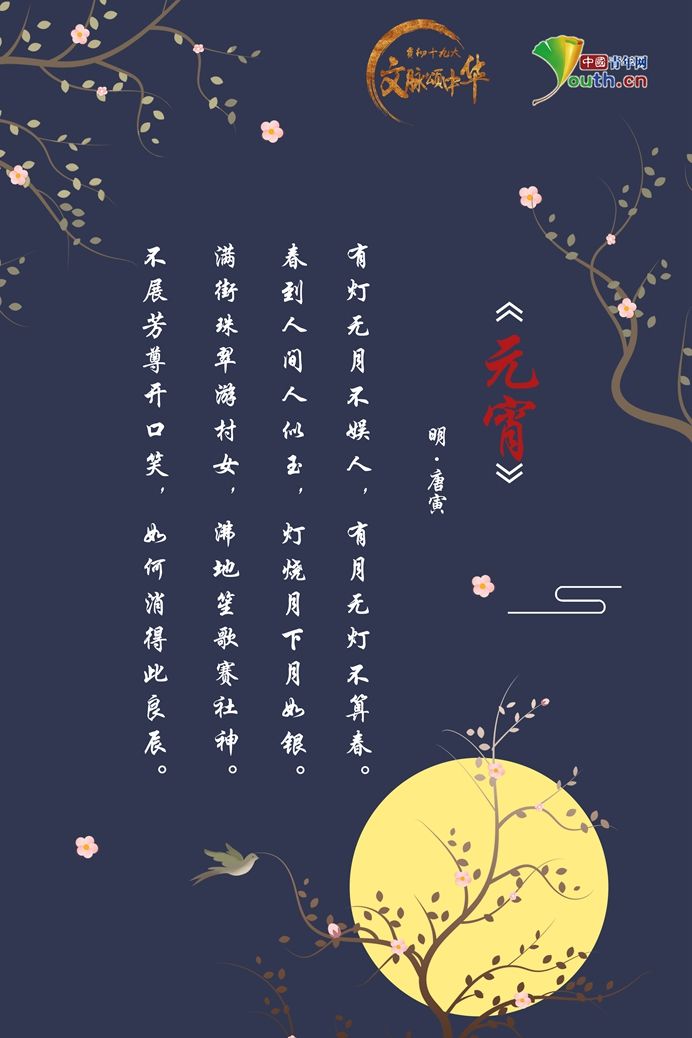 喜迎十九大
文脉颂中华
中國青年网
Youth.cn
《元宵》
明·唐寅
有灯无月不娱人，有月无灯不算春。
春到人间人似玉，灯烧月下月如银。
满街珠翠游村女，沸地笙歌赛社神。
不展芳尊开口笑，如何消得此良辰。